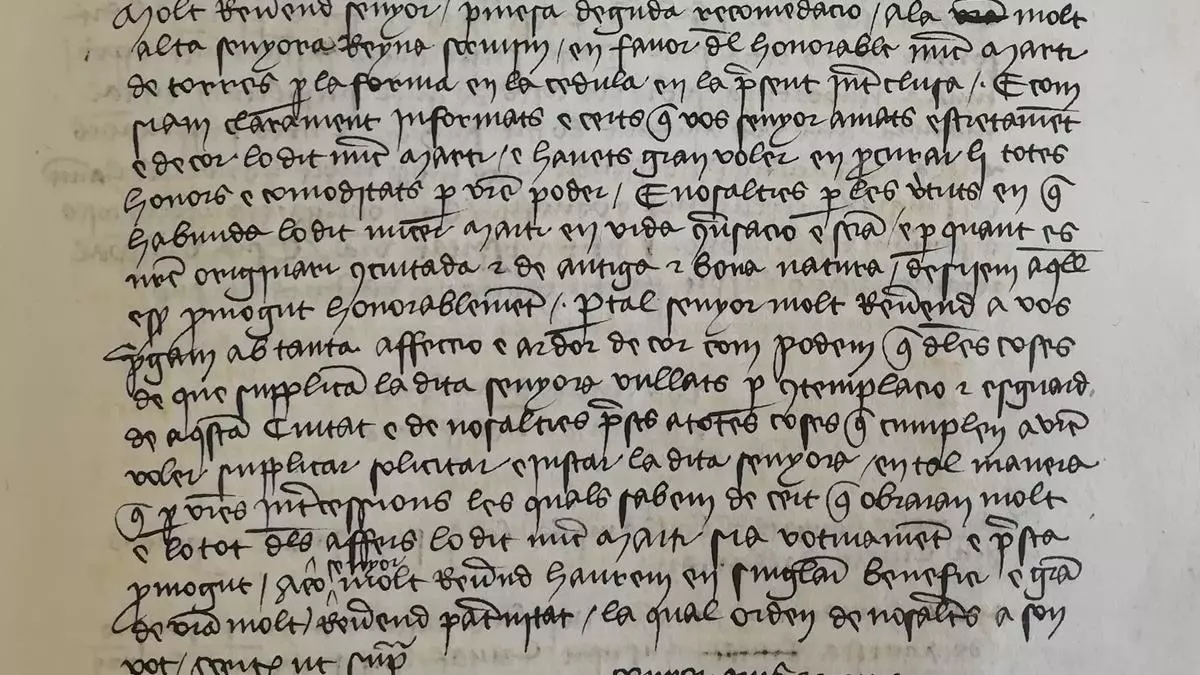 Molt Reverend senyor / premesa deguda recomedacio / ala molt
alta senyora Reyna scrivim / en favor del honorable micer Marti
de torres per la forma en la cedula en la present interclusa /. E com
siam clarament informats e certs que vos senyor amats estretament
e de cor lo dit micer Marti / e havets gran voler en procurar li totes
honors e comoditats per vostre poder / E nosaltres per les virtuts en que
habunda lo dit micer Marti en vida conversacio e sciencia / e per quant es
nostre originari conciutada e de antiga e bona natura / desijem aquell
esser promogut honorablement /. Per tal senyor molt Reverend a vos
pregam ab tanta affeccio e ardor de cor com podem que deles coses
de que supplicam la dita senyora vullats per contemplacio e esguard
de aquesta Ciutat e de nosaltres prests a totes coses que cumplen a vostre
voler supplicar solicitar e instar la dita senyora / en tal manera
que per vostres intercessions les quals sabem de cert que obraran molt
e lo tot dels affers lo dit micer Marti sia votivament e presta
promogut / Aço senyor molt Reverend haurem en singular benefici e gracia
de vostra molt Reverend paternitat / la qual orden de nosaltres a son
vot / ut supra